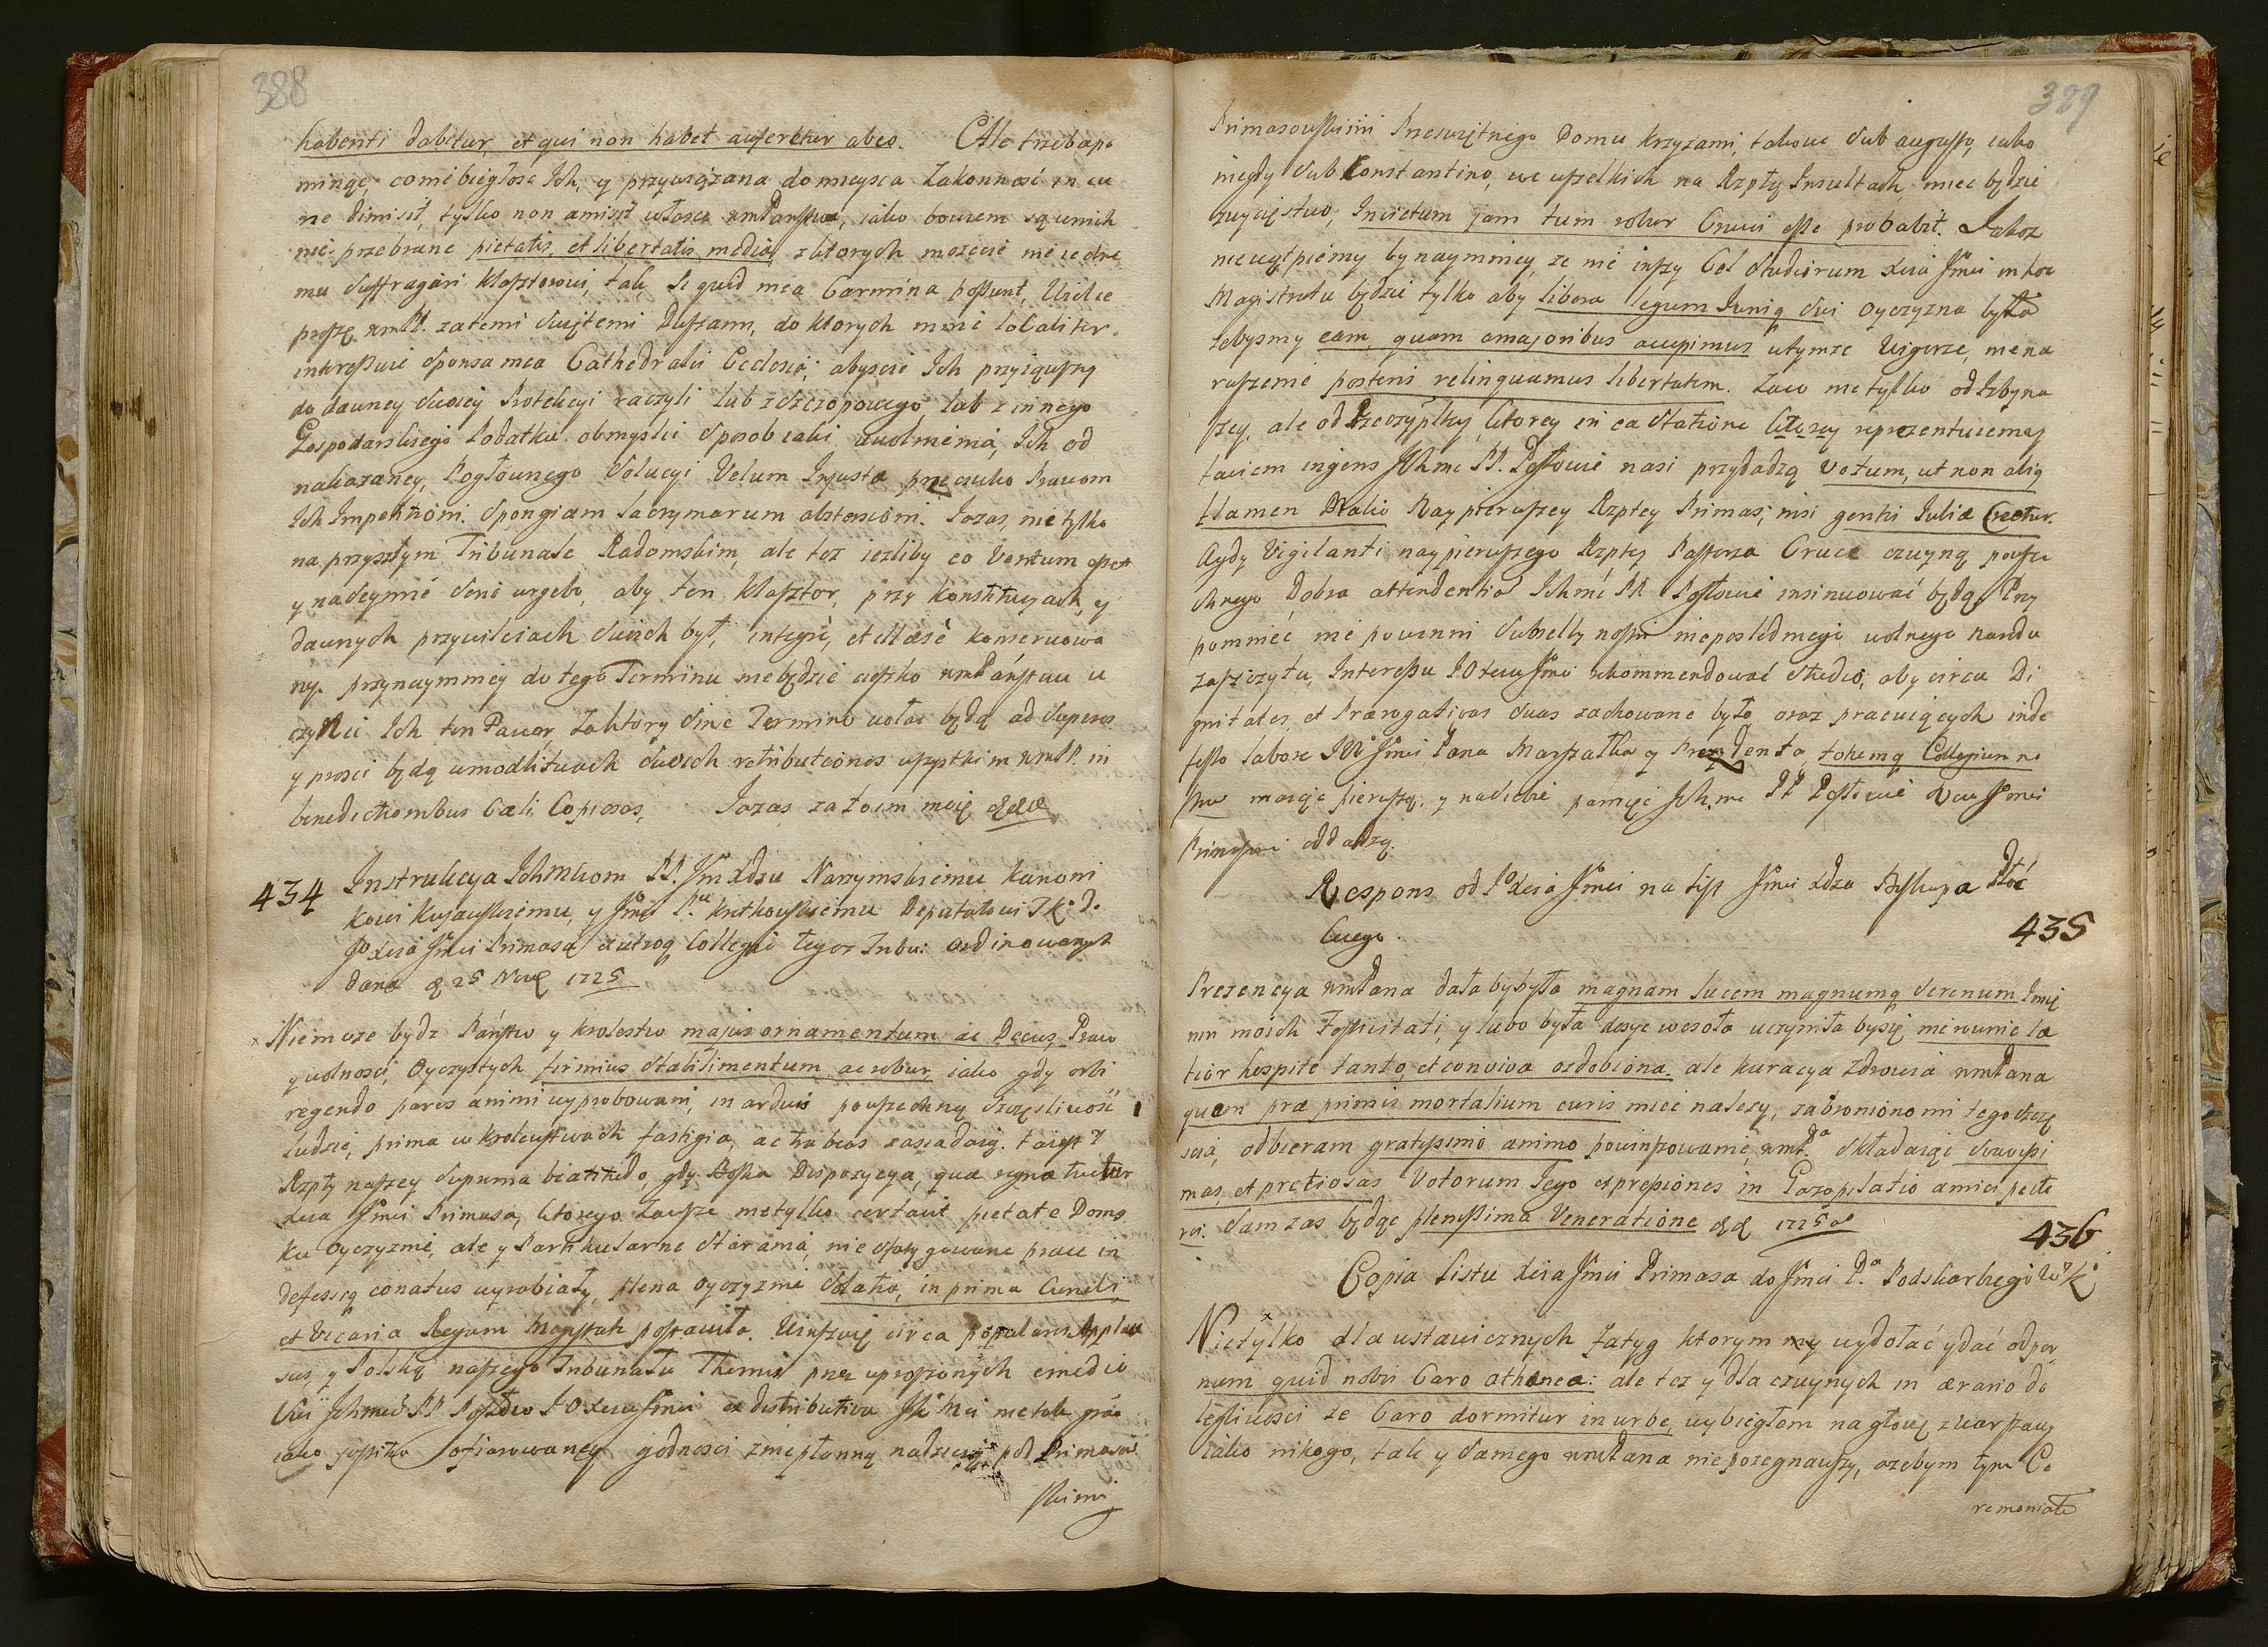 388
habenti dabitur, et qui non habet auferetur abeo. Ale trzebapo
minąc, co niebiegłosc Ich, y przywiązana do mieysca Zakonnosć in cu
ne dimisit, tylko non amisit własci wmPanstwa, iako bowiem są unich
nie przebrane pietatis, et libertatis media, z ktorych mozecie nie iedne
mu suffragari Klasztorowi, tak, si quid mea Carmina possunt, Wielce
proszę wmPP. zatemi swiętemi Duszami, do ktorych mnie localiter
interessuie Sponsa mea Cathedralis Ecclesia; abyscie Ich przyiąwszy
do dawney swoiey Protekcyi raczyli lub z czopowego, lub z innego
Gospodarskiego Podatku obmyslic sposob iaki uwolnienia, Ich od
nakazaney, Pogłownego Solucyi Velum Injusta przeciwko Prawom
Ich Impetitioni. Spongiam lacrymarum abstersioni. Ja zas, nie tylko
na przyszłym Tribunale Radomskim, ale tez iezliby eo Ventum esset
y na Seymie seriè urgebo, aby ten Klasztor, przy Konstitucyach, y
dawnych przywileiach swoich był, integrè, et illaesè konserwowa
ny. przynaymniey do tego Terminu niebędzie cieszko wmPaństwu u
czynic Ich ten Fawor, za ktory sine Termino wołac będą ad Superos
y prosic będą w modlitwach swoich retributiones wszystkim wmPP. in
benedictionibus Caeli Copiosas, Ja zas zatoim moię &&
434 Instrukcya Ichmciom PP. Jm Xdzu Narzymskiemu Kanoni
kowi Kujawskiemu, y Jmci Pu Kretkowskiemu Deputatowi TK. Do
JO Xcia Jmci Primasa ex utroq Collegio tegoz Tribu: ordinowanych
Dana d 25 Nove 1725
x Niemoze bydz Państw y krolestw majus ornamentum ac Decus, Praw
y wolnosci, Oyczystych firmius stabilimentum ac robur, iako gdy orbi
regendo pares animi wyprobowani, in arduis powszechną szczęsliwosć
ludzie, prima w Krolewstwach fastigia, ac trabeas zasiadaią. ta iest y
Rzpty naszey suprema beatitudo, gdy Boska Dispozycya, qua regna tuetur
Xcia Jmci Primasa, ktorego zawsze nietylko certavit pietate Domo
ku Oyczyznie, ale y Partikularne starania, nie spracowane prace in
defessiq conatus wyrobiały, plena oyczyznie solatia, in prima Curuli,
et Vicaria Regum Majestati postawiła. Winszuię circa populares Applau
sus, y Polską naszego Tribunału Themis przez uproszonych e medio
Sui Ichmciow PP Posłow JO Xciu Jmci ex distributiva Jk Mci
iako sofiarowaney godnosci z nieptonną nadzieią, ze pod Primasow
skimi
389
Primasowskimi Przeswiętnego Domu krzyzami, takowe sub augusto, iako
niegdy sub Constantino, we wszelkich na Rzptę Insultach miec będzie
zwycięstwo, Invictum jam tum robur Cruci esse probabit. Jakoz
niewątpiemy bynaymniey, ze nie inszy Cel studiorum Xcia Jmci in hoc
Magistratu będzie tylko aby libera legum Juriq sui Oyczyzna była
zebysmy eam, quam a majoribus accepimus w tymze Wigorze, niena
ruszenie posteris relinquamus libertatem. Zaco nietylko od Izby na
szey, ale od Rzeczypltey, ktorey in ea statione ktorey reprezentuiemy
faciem ingens Jchmc PP. Posłowie nasi przydadzą votum, ut non aliq
flamen Dialis Naypierwszey Rzptey Primas, nisi gentis Juliae Creetur.
Agdy Vigilanti naypierwszego Rzptey Pasterza Cruce czuyną powsze
chnego Dobra attendentia Ichmc PP. Posłowie insinuować będą, Przy
pomniec nie powinni Subselly naszey nieposledniego wolnego narodu
zaszczytu, Interessu JO Xciu Jmci rekommendować studio, aby circa Di
gnitates et Praerogativas suas zachowane było, oraz pracuiących inde
fesso labore JW Jmci Pana Marszałka y Prezydenta, totiusq Collegium no
strum maięc pierwszą, y nasiebie pamięc Jchmc PP Posłowie Xciu Jmci
Primasowi oddadzą.
Respons od JO Xcia Jmci na list Jmci Xdza Biskupa Płoc
kiego. 435
Prezencya wmPana data byłaby magnam lucem magnumq Serenum Imię
nin moich Festivitati, y lubo była dosyc wesoła uczyniła bysię mi równie lae
tior hospite tanto, et conviva ozdobiona. ale kuracya Zdrowia wmPana
quam prae primis mortalium curis miec nalezy, zabroniono mi tego szczę
scia, odbieram gratissimo animo powinszowanie, wmP.a składaiąc suavissi
mas, et pretiosas Votorum Jego expressiones in Gazophilatio amici pecto
ris. Sam zas będąc plenissima Veneratione && 1725
436
Copia Listu Xcia Jmci Primasa do Jmci P.a Podskarbiego W K
Nietylko dla ustawicznych Fatyg ktorym wydołać y dać odpor
num quid nobis Caro athenea: ale tez y dla czuynych in aerario do
legliwosci ze Caro dormitur in urbe, wybiegłem na głowę z Warszawy
iako nikogo, tak y samego wmPana niepozegnawszy, ozebym tym Ce
remoniałe